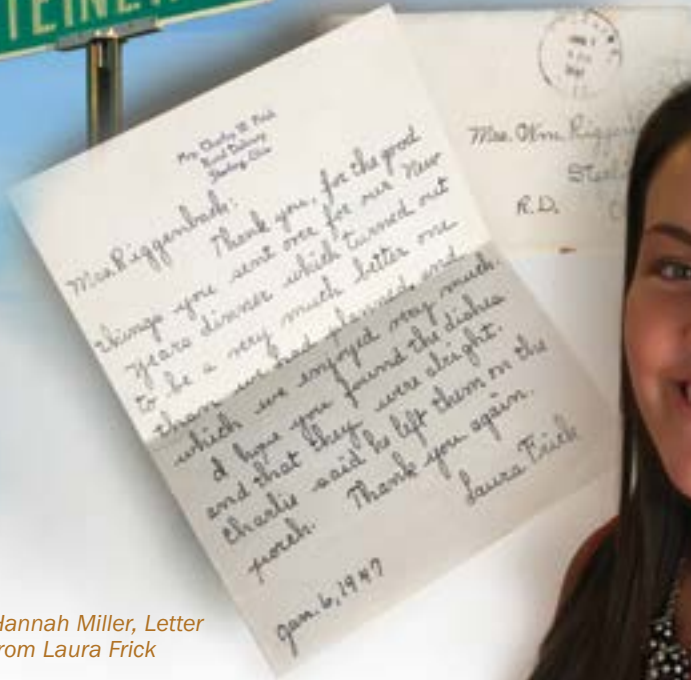 TEINE
Mrs. Charley W. Frick
Rural Delivery
Sterling, Ohio
Mrs Riggenbach:
Thank you, for the good
things you sent over for our New
Years dinner which turned out
to be a very much better one
than we had planned and
which we enjoyed very much.
I hope you found the dishes
and that they were alright.
Charlie said he left them on the
porch. Thank you again.
Laura Frick
Jan. 6, 1947
Mrs. Wm. Riggen
Sterli
R.D. O
Hannah Miller, Letter
from Laura Frick